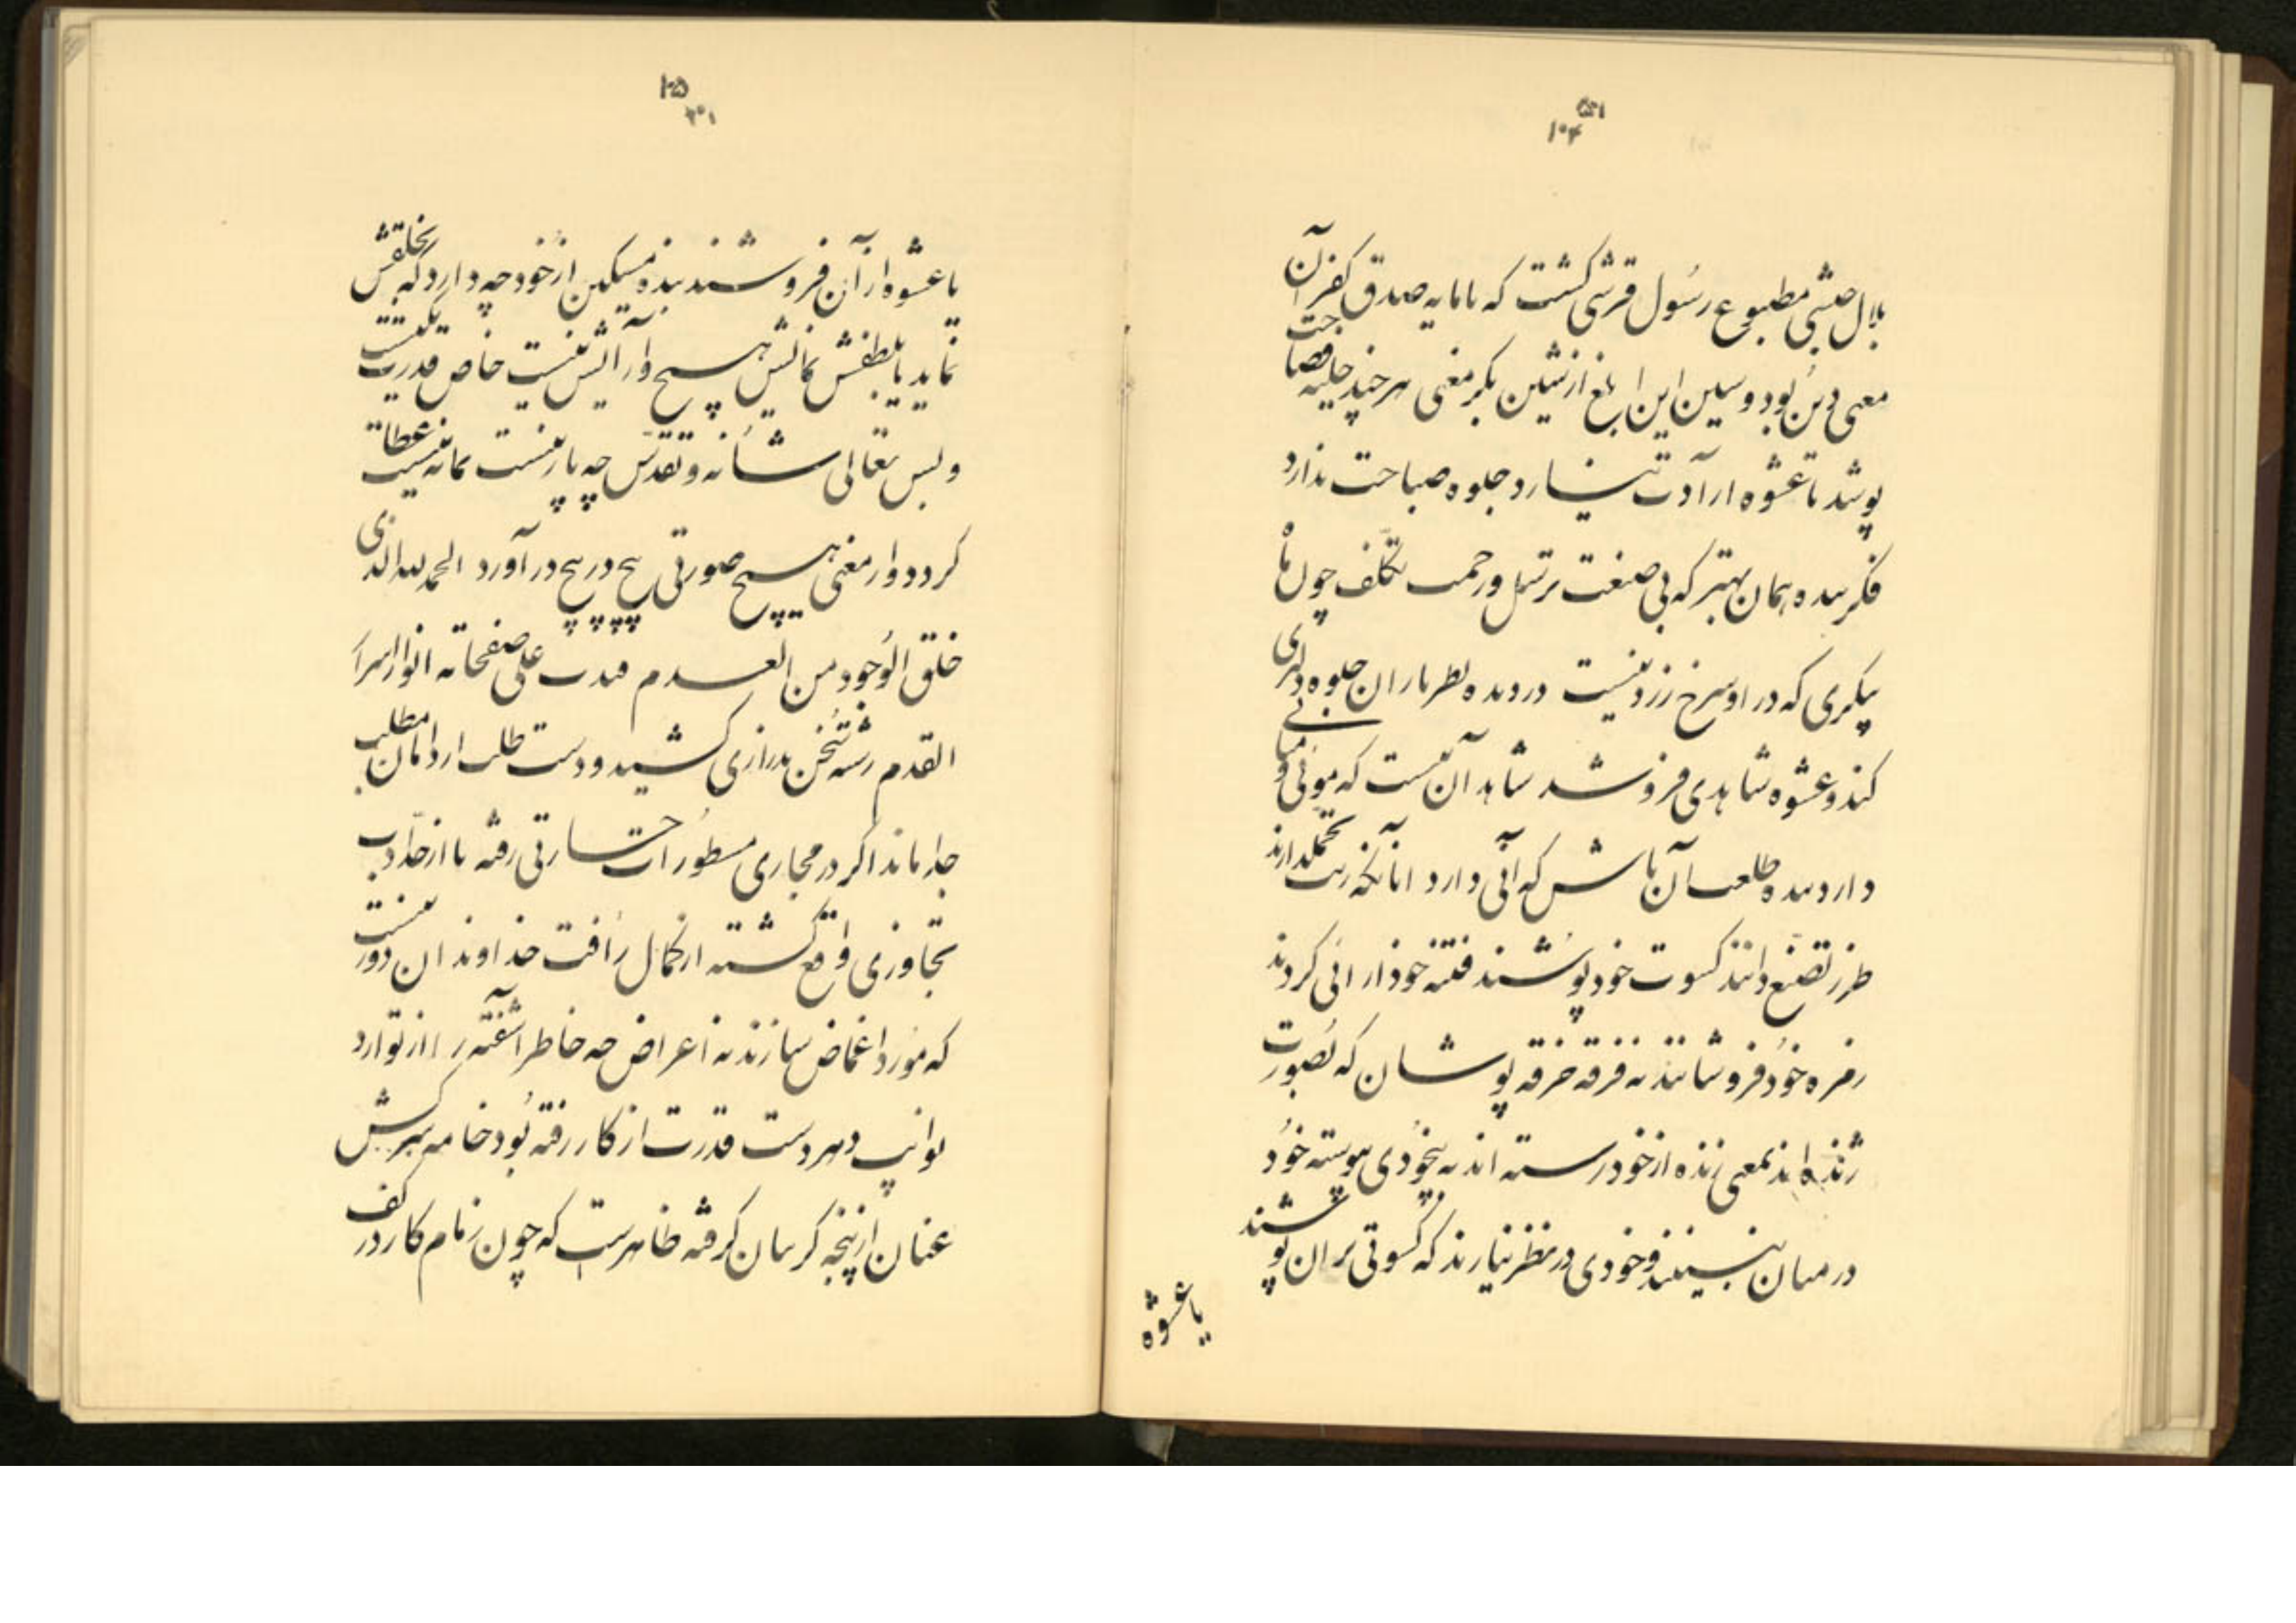 بلال حبشی مطبوع رسول قرشی گشت که با مایه صدق کفر آن
معنی دین بود و سین این ابلغ از شین بکر معنی هر چند حلیه فصاحت
پوشد تا عشوه ارادت نیارد جلوه صباحت ندارد
فکر بنده همان بهتر که بی صنعت ترسل و زحمت تکلف چون ماه
پیکری که در او سرخ و زرد نیست در دیده نظر بازان جلوه دلبری
کند و عشوه شاهدی فروشد شاهد آن نیست که موئی و میانی
دارد بنده طلعت آن باش که آنی دارد اما آنانکه زینت تجمل دارند
طرز تصنع دانند کسوت خود پوشند فتنه خود آرائی گردند
زمره خود فروشانند نه فرقه خرقه پوشان که بصورت
ژنده اند بمعنی زنده از خود رسته اند به بیخودی پیوسته خود
در میان نبینند و خودی در نظر نیارند که کسوتی بر آن پوشند
یا عشوه
یا عشوه از آن فروشند بنده مسکین از خود چه دارد که بخلقش
نماید یا بلطفش نمایش هیچ و آرایش نیست خاص قدرت یکیست
و بس تعالی شانه و تقدس چه یار نیست بمانیست عطا
کرد و از معنی هیچ صورتی پیچ در پیچ در آورد الحمد لله الذی
خلق الوجود من العدم فبدت علی صفحاته انوار اسرار
القدم رشته سخن بدرازی کشید و دست طلب از دامان مطلب
جدا ماند اگر در مجاری مسطورات جسارتی رفته یا از حد ادب
تجاوزی واقع گشته از کمال رأفت خداوند ان دور نیست
که مورد اغماض سازند نه اعراض چه خاطر آشفته را از توارد
نوایب دهر دست قدرت از کار رفته بود خامه سرکش
عنان از پنجه گریبان گرفته ظاهرست که چون زمام کار در کف